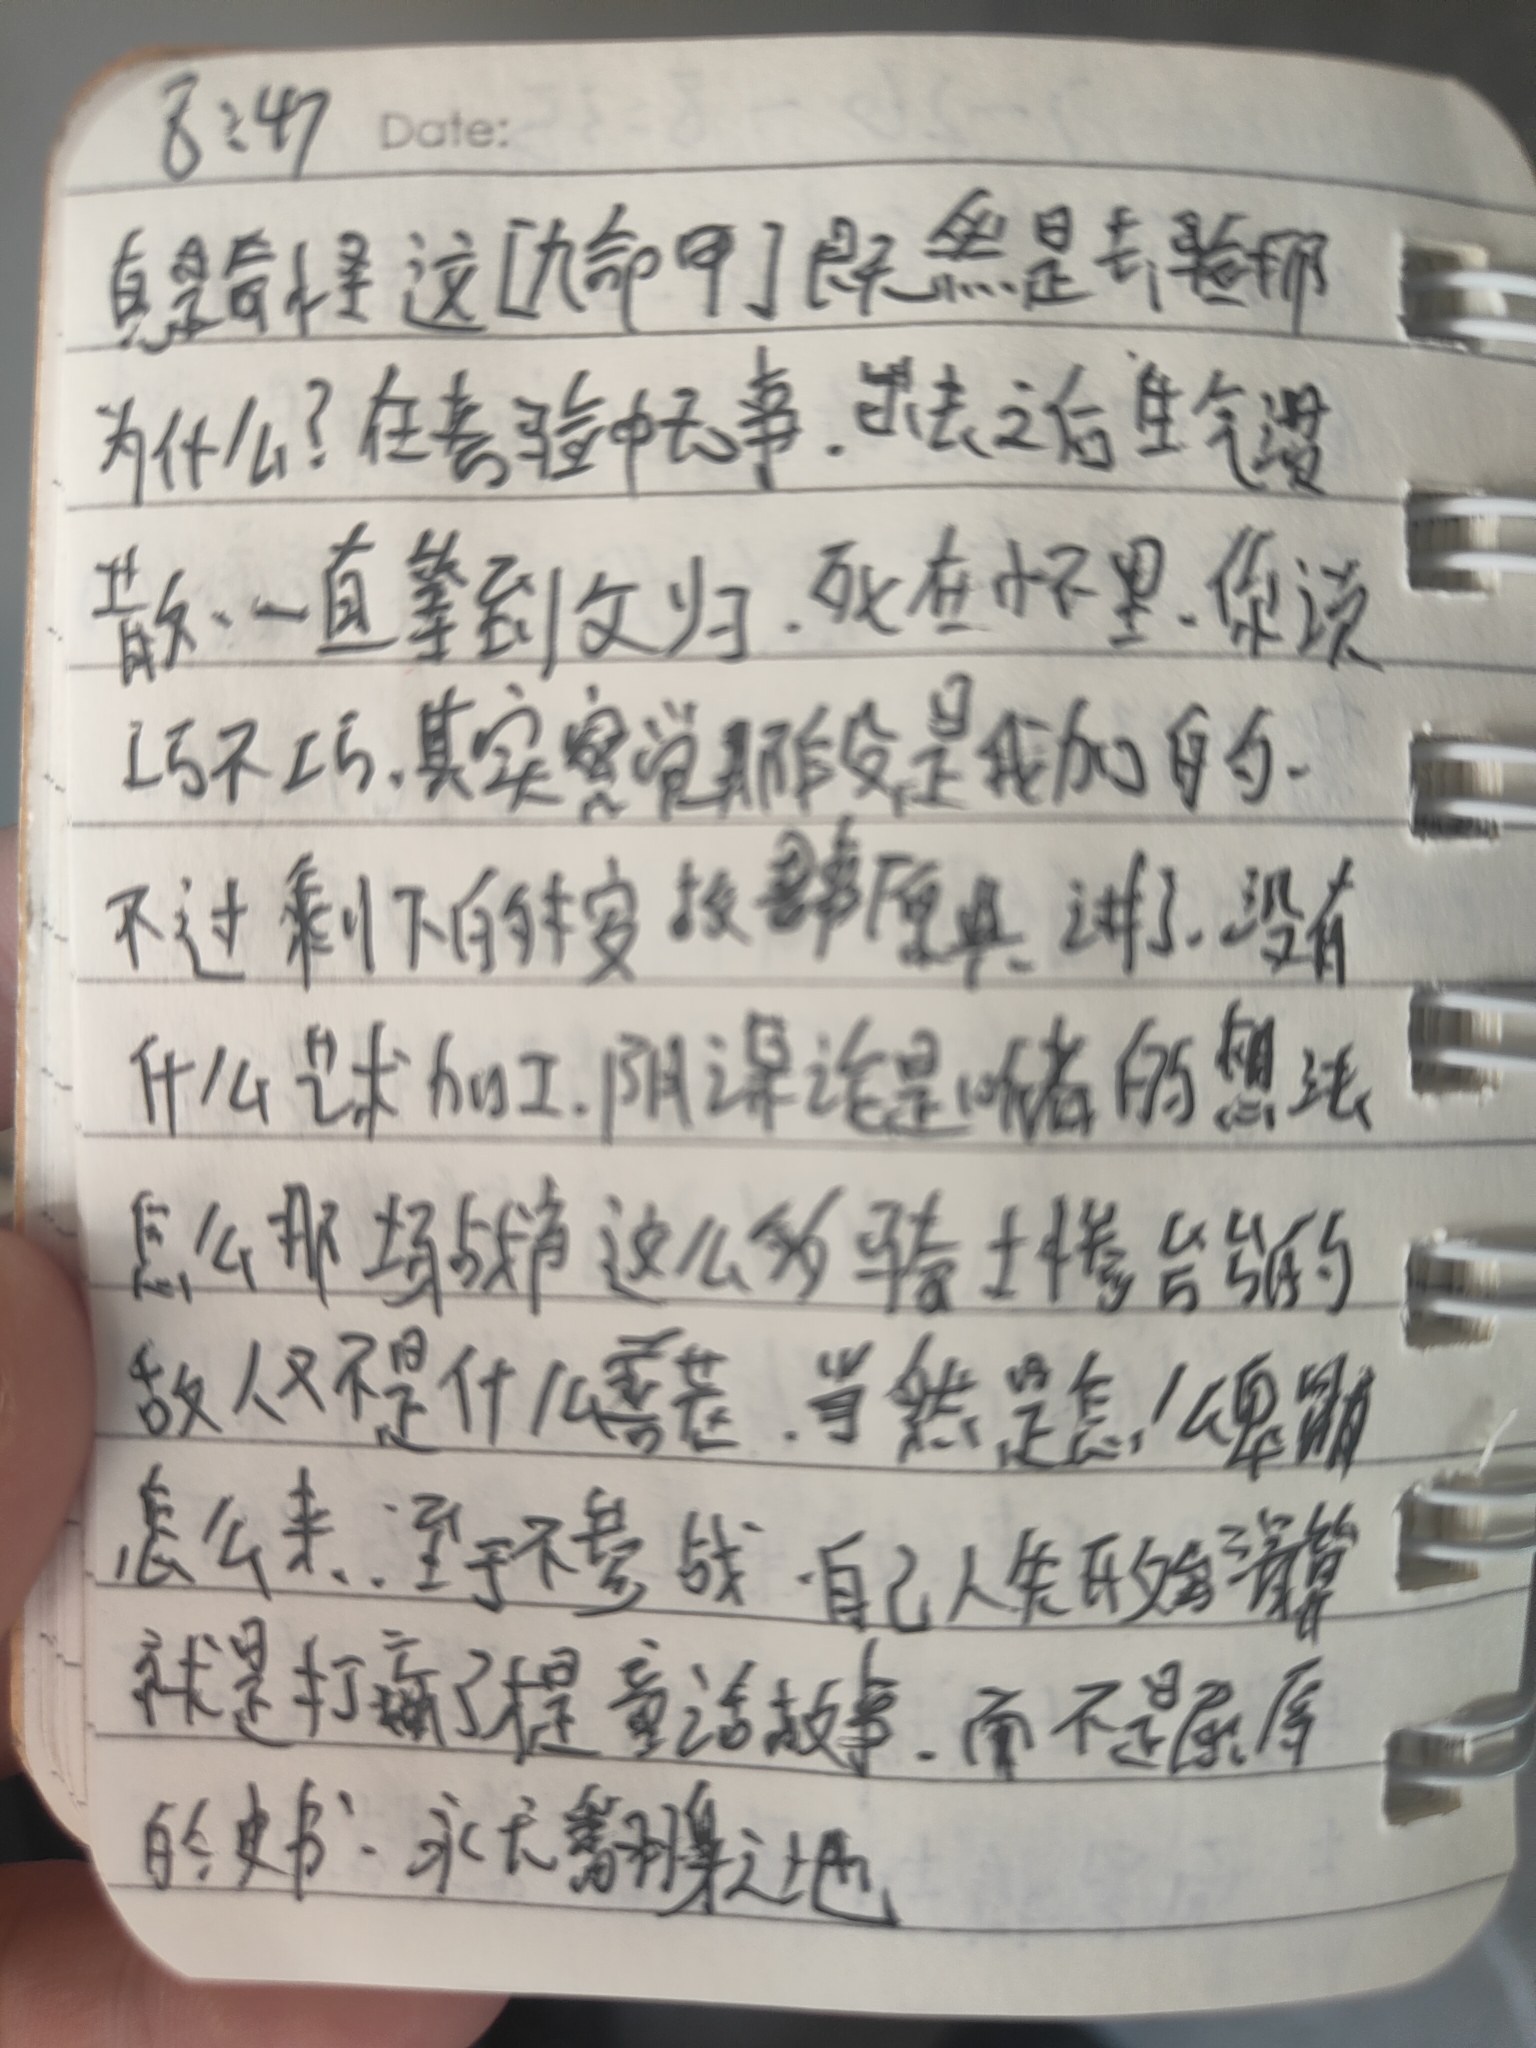 8:47 Date:
真是奇怪 这[九命甲]既然是去验那
为什么?在考验中无事.出去之后生气溃
散、一直等到文归.死在怀里.你说
巧不巧.其实察觉那段是我加的.
不过剩下的 按 原典 讲了.没有
什么艺术加工.阴谋论是听者的想法
怎么那场战有这么多骑士惨
敌人又不是什么善茬.当然是怎么卑鄙
怎么来..至于不参战.自己人先
就是打赢了才是童话故事.而不是屈辱
的史书.永无翻身之地